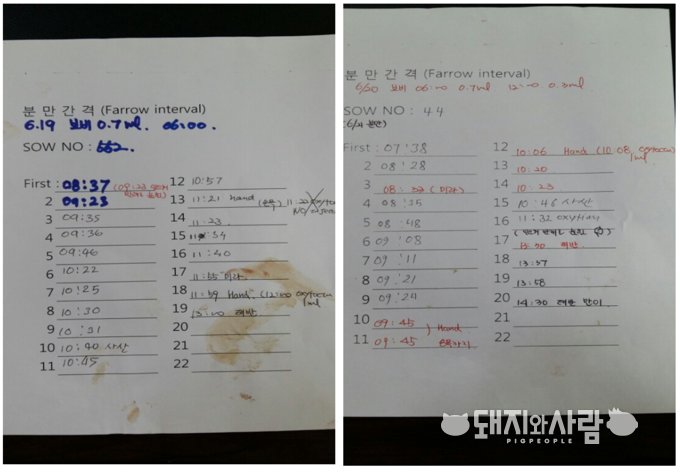 분 만 간 격 (Farrow interval)
6.19 보비 0.7ml. 06:00.
SOW NO : 662.
First : 08:37
2 09:23
3 09:35
4 09:36
5 09:46
6 10:22
7 10:25
8 10:30
9 10:31
10 10:40 사산
11 10:45
12 10:57
13 11:21 hand
14 11:23
15 11:34
16 11:40
17 11:55 미라
18 11:59 Hand (12:00 oxytocin 1ml
19 13:00 태반
20
21
22
분 만 간 격 (Farrow interval)
6/20 보비 06:00 0.7ml 12:00 0.3ml
SOW NO : 44
(6/21 분만)
First : 07:38
2 08:28
3 08:32 (미라)
4 08:35
5 08:48
6 09:08
7 09:11
8 09:21
9 09:24
10 09:45 } Hand
11 09:45
12 10:06 Hand (10:08 oxytocin 1ml
13 10:20
14 10:23
15 10:46 사산
16 11:32 oxytocin
17 13:30 태반
18 13:57
19 13:58
20 14:30 태반 많이
21
22
돼지와사람
PIGPEOPLE